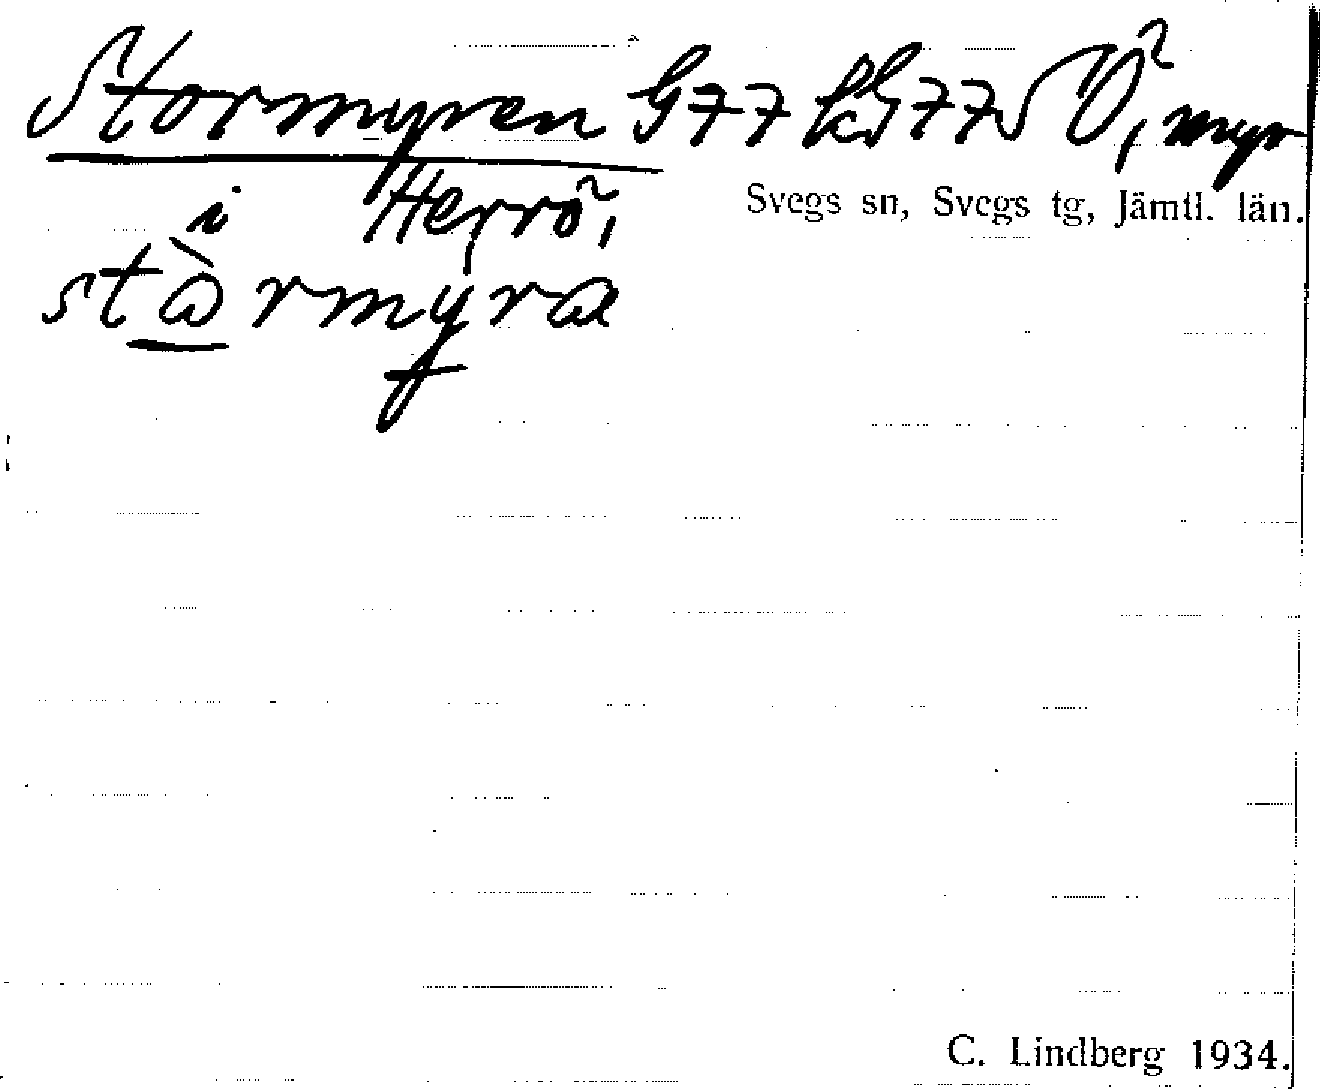 Stormyren G77 kG77 SÖ, myr
i Herrö, Svegs sn, Svegs tg, Jämtl. län.
stòrmyra
C. Lindberg 1934.